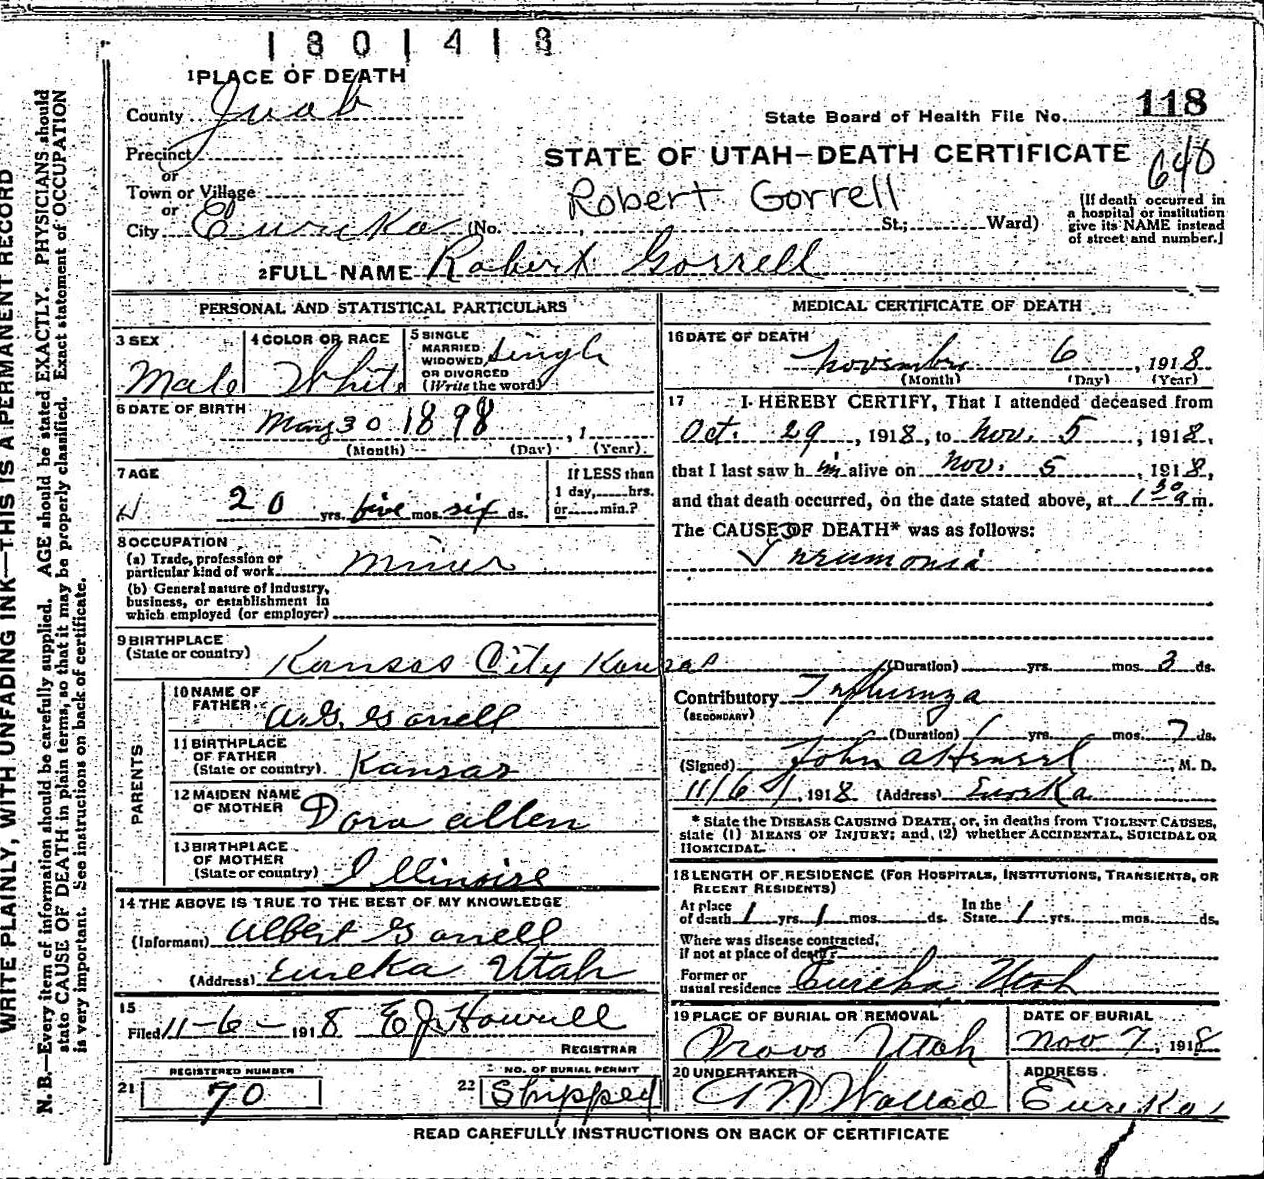 1801418
1 PLACE OF DEATH
County Juab
State Board of Health File No. 118
Precinct
or
Town or Village
or
City Eureka (No. , St.; Ward)
STATE OF UTAH—DEATH CERTIFICATE
640
Robert Gorrell
[If death occurred in
a hospital or institution
give its NAME instead
of street and number.]
2 FULL NAME Robert Gorrell
PERSONAL AND STATISTICAL PARTICULARS
3 SEX
Male
4 COLOR OR RACE
White
5 SINGLE
MARRIED
WIDOWED
OR DIVORCED
(Write the word)
Single
6 DATE OF BIRTH
May 30 1898 , 1
(Month) (Day) (Year)
7 AGE
20 yrs. five mos. six ds.
If LESS than
1 day, hrs.
or min.?
8 OCCUPATION
(a) Trade, profession or
particular kind of work Miner
(b) General nature of Industry,
business, or establishment in
which employed (or employer)
9 BIRTHPLACE
(State or country) Kansas City Kansas
PARENTS
10 NAME OF
FATHER A.G. Gorrell
11 BIRTHPLACE
OF FATHER
(State or country) Kansas
12 MAIDEN NAME
OF MOTHER Dora Allen
13 BIRTHPLACE
OF MOTHER
(State or country) Illinoise
14 THE ABOVE IS TRUE TO THE BEST OF MY KNOWLEDGE
(Informant) Albert Gorrell
(Address) Eureka Utah
15
Filed 11-6- 1918 E J Howell
REGISTRAR
21 REGISTERED NUMBER
70
22 NO. OF BURIAL PERMIT
Shipped
MEDICAL CERTIFICATE OF DEATH
16 DATE OF DEATH
November 6 , 1918
(Month) (Day) (Year)
17 I HEREBY CERTIFY, That I attended deceased from
Oct. 29 , 1918, to Nov. 5 , 1918,
that I last saw h im alive on Nov. 5 , 1918,
and that death occurred, on the date stated above, at 1 30 a m.
The CAUSE OF DEATH* was as follows:
Pneumonia
(Duration) yrs. mos. 3 ds.
Contributory Influenza
(SECONDARY)
(Duration) yrs. mos. 7 ds.
(Signed) John A Hensel , M. D.
11/6 , 1918 (Address) Eureka
* State the DISEASE CAUSING DEATH, or, in deaths from VIOLENT CAUSES,
state (1) MEANS OF INJURY; and, (2) whether ACCIDENTAL, SUICIDAL OR
HOMICIDAL.
18 LENGTH OF RESIDENCE (FOR HOSPITALS, INSTITUTIONS, TRANSIENTS, OR
RECENT RESIDENTS)
At place
of death 1 yrs. 1 mos. ds. In the
State 1 yrs. mos. ds.
Where was disease contracted,
if not at place of death?
Former or
usual residence Eureka Utah
19 PLACE OF BURIAL OR REMOVAL
Provo Utah
DATE OF BURIAL
Nov 7, 1918
20 UNDERTAKER
ADDRESS
Eureka
READ CAREFULLY INSTRUCTIONS ON BACK OF CERTIFICATE
WRITE PLAINLY, WITH UNFADING INK—THIS IS A PERMANENT RECORD
N. B.—Every item of information should be carefully supplied. AGE should be stated EXACTLY. PHYSICIANS should
state CAUSE OF DEATH in plain terms, so that it may be properly classified. Exact statement of OCCUPATION
is very important. See instructions on back of certificate.